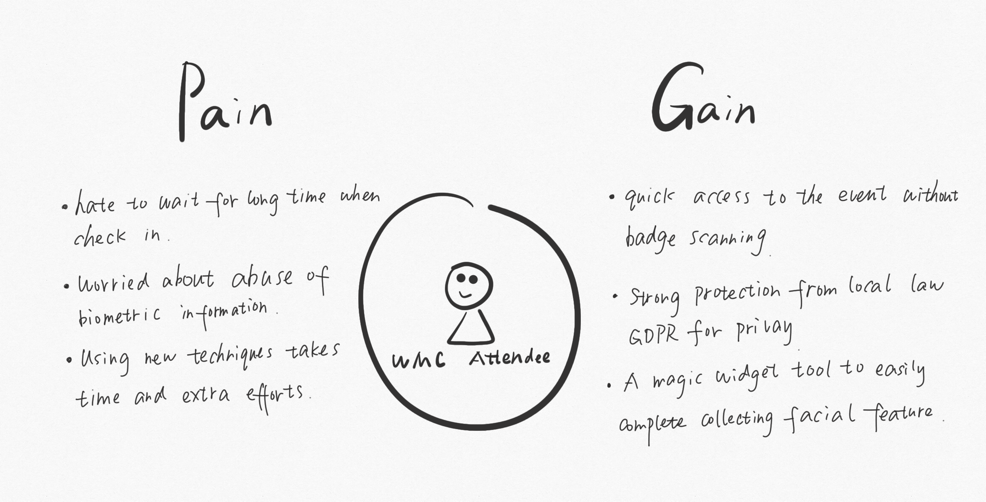 Pain
• hate to wait for long time when
check in.
• Worried about abuse of
biometric information.
• Using new techniques takes
time and extra efforts.
WMC Attendee
Gain
• quick access to the event without
badge scanning.
• Strong protection from local law
GDPR for privay.
• A magic widget tool to easily
complete collecting facial feature.